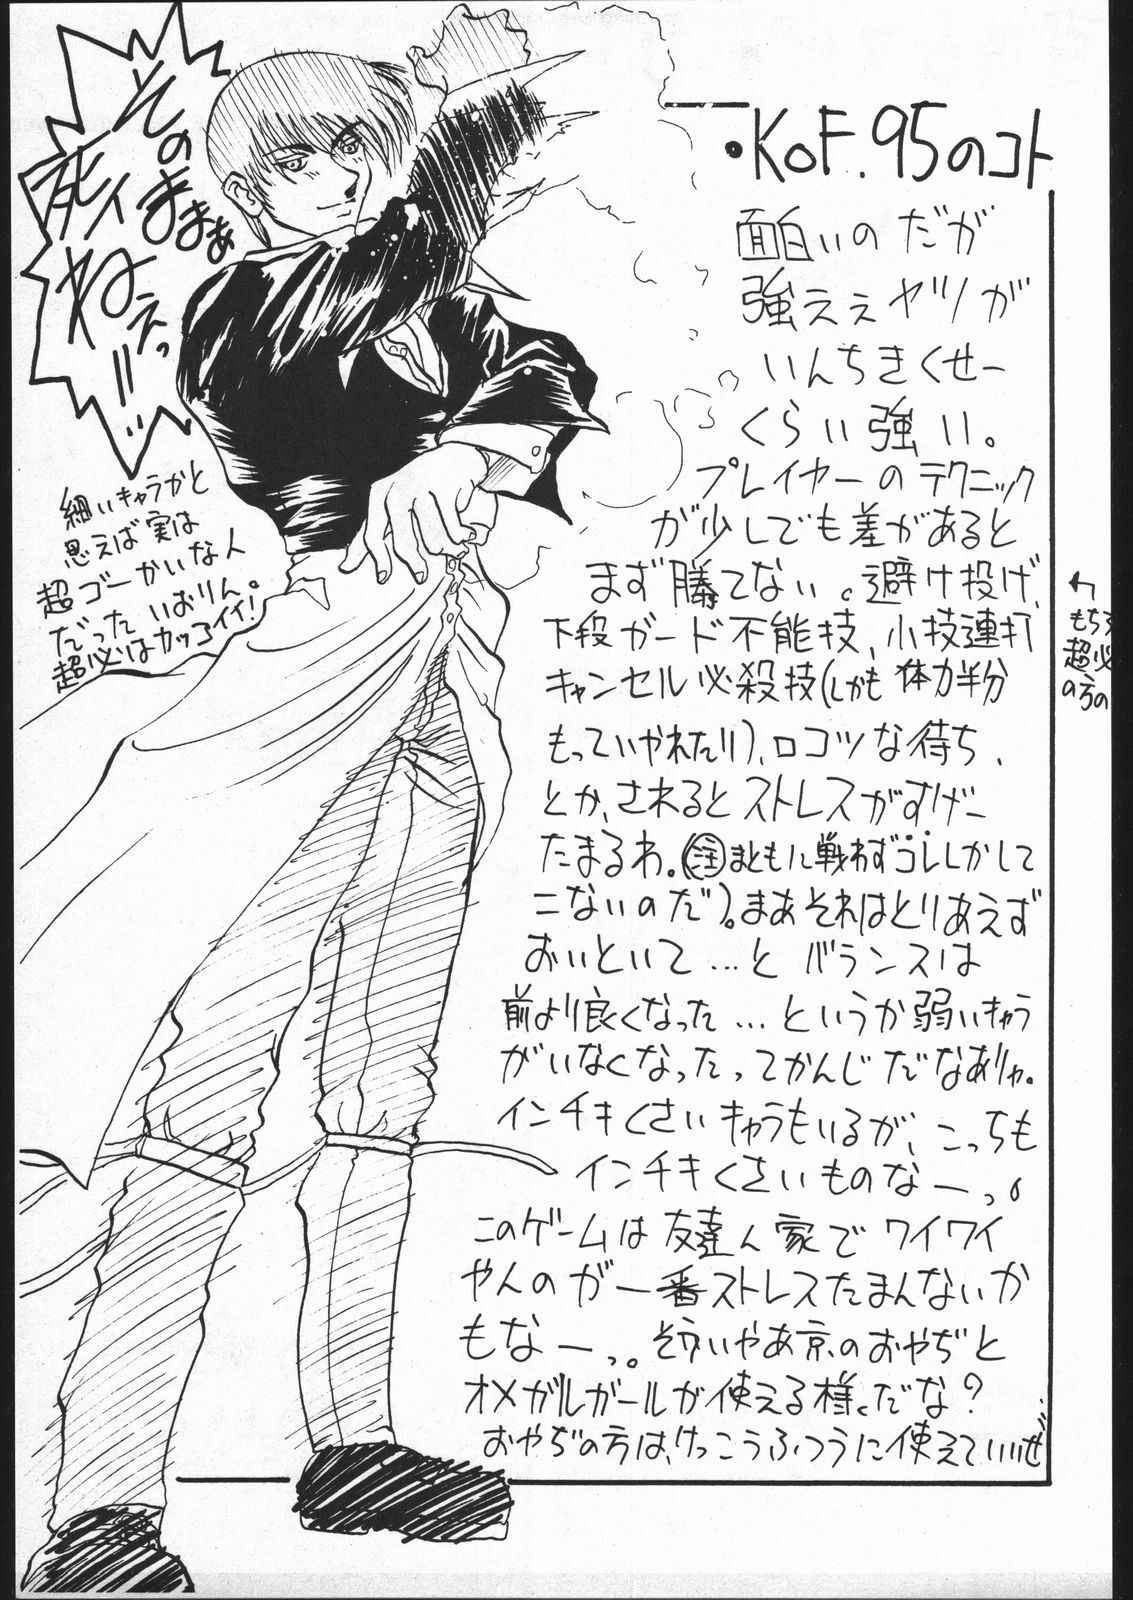 ・KOF.95のコト
面白いのだが
強ぇぇヤツが
いんちきくせー
くらい強い。
プレイヤーのテクニック
が少しでも差があると
まず勝てない。避け投げ、
下段ガード不能技、小技連打
キャンセル必殺技(しかも体力半分
もっていかれたり)、ロコツな待ち、
とか、されるとストレスがすげー
たまるわ。(注まともに戦わずコレしかして
こないのだ)。まあそれはとりあえず
おいといて…と バランスは
前より良くなった…というか弱いきゃら
がいなくなったってかんじだなありゃ。
インチキくさいきゃらもいるが、こっちも
インチキくさいものなーっ。
このゲームは友達ん家でワイワイ
やんのが一番ストレスたまんないか
もなーっ。そういやあ京のおやぢと
オメガルガールが使える様だな?
おやぢの方は、けっこうふつうに使えていいぜ
そのまままぁ
死ィ
ねぇっ!!
細いきゃらかと
思えば実は
超ゴーかいな人
だったいおりん。
超必はカッコイイ!
もちろ
超必
の方の